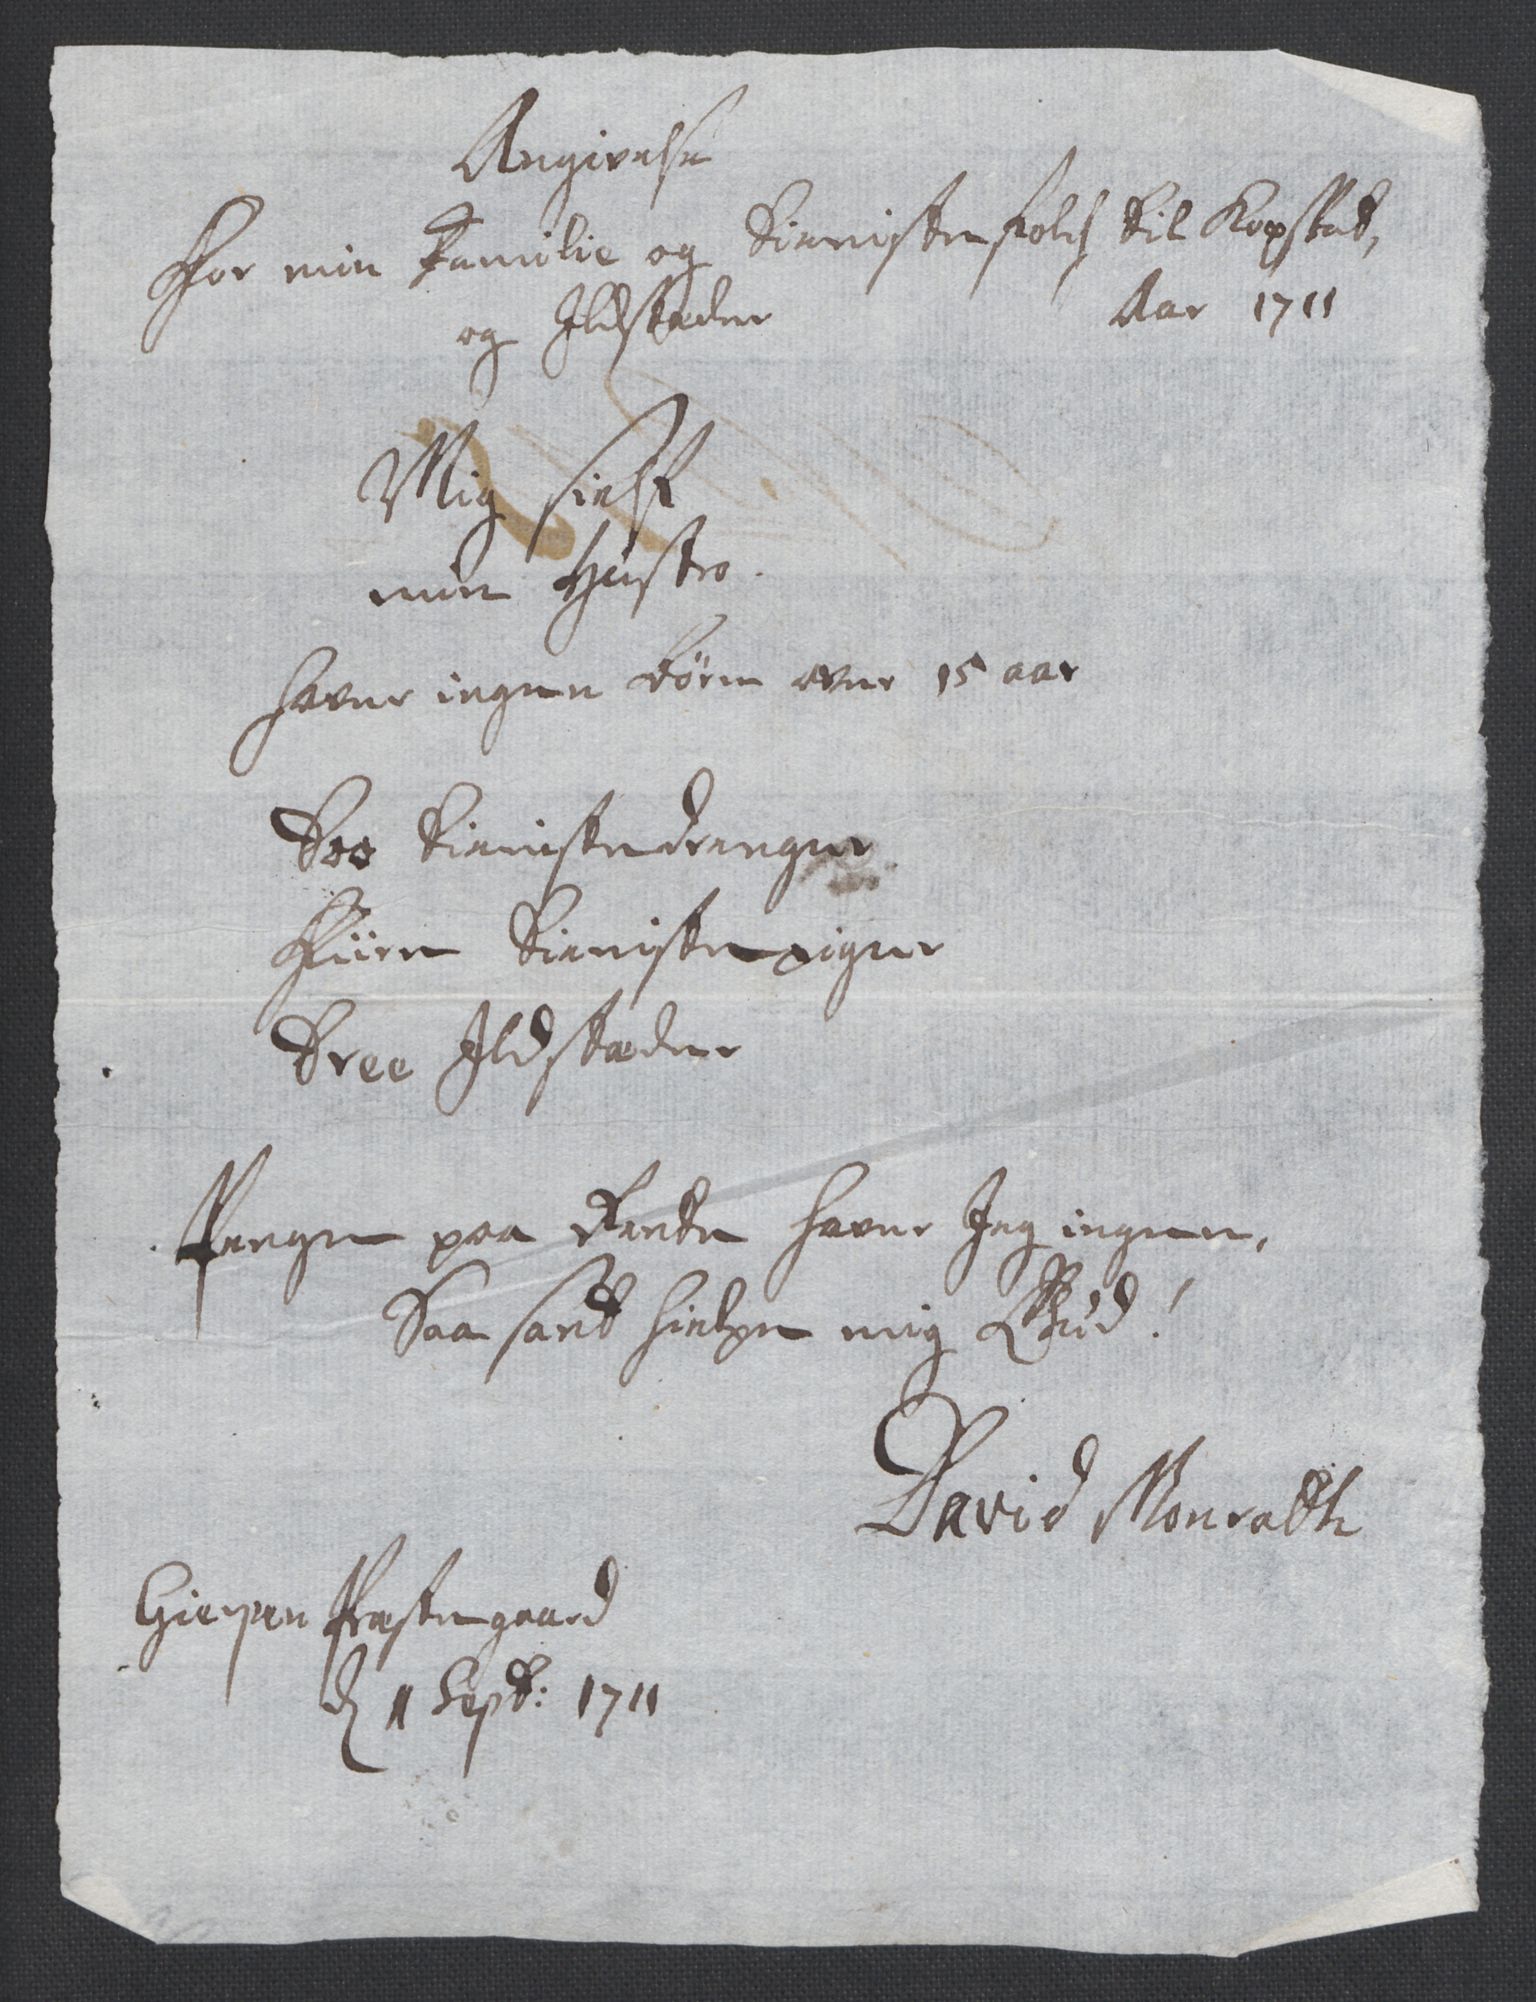 Angivelse
For min Familie og Tienistefolch til Kopskat,
og Ildstæder Aar 1711
Mig sielf
min Hustro.
haver ingen børn over 15 aar
Too Tienistedrenger
Fiire Tienistepiger
Tree Ildstæder
Penge paa Rente haver Jeg ingen,
Saa sant hielpe mig Gud!
David Monrath
Gierpen Præstegaard
d 11 Sept: 1711